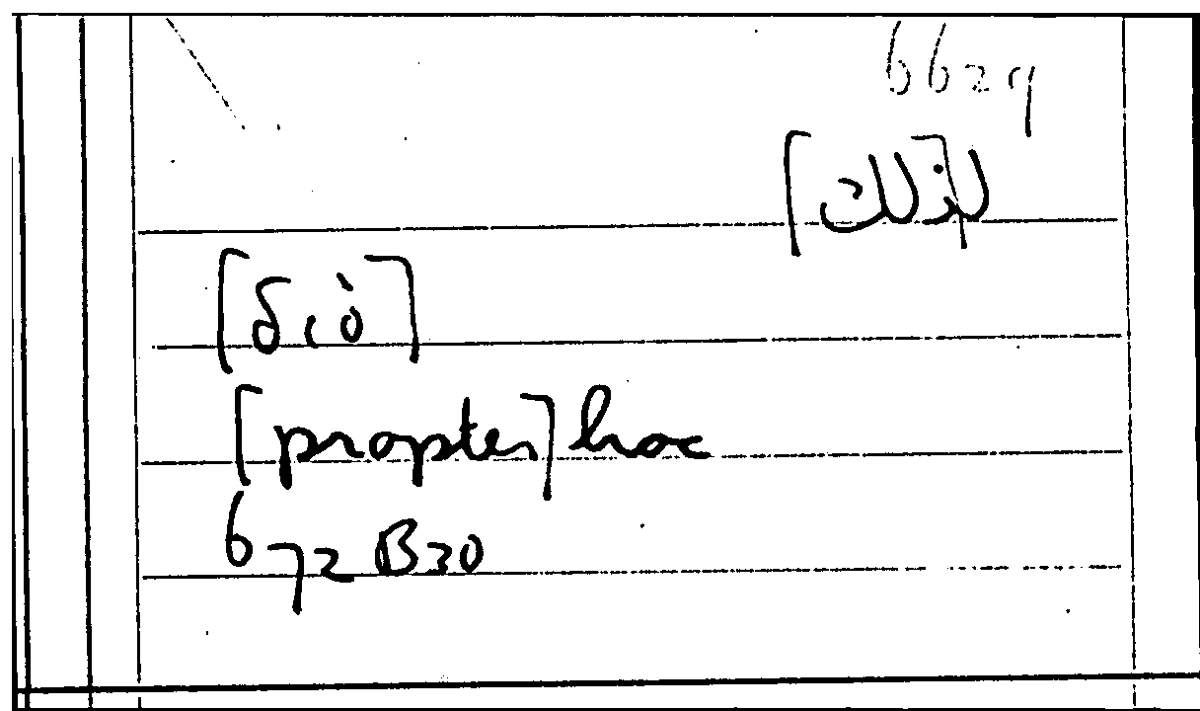 6629
ل[ذلك]
[διὸ]
[propter] hoc
672 B30